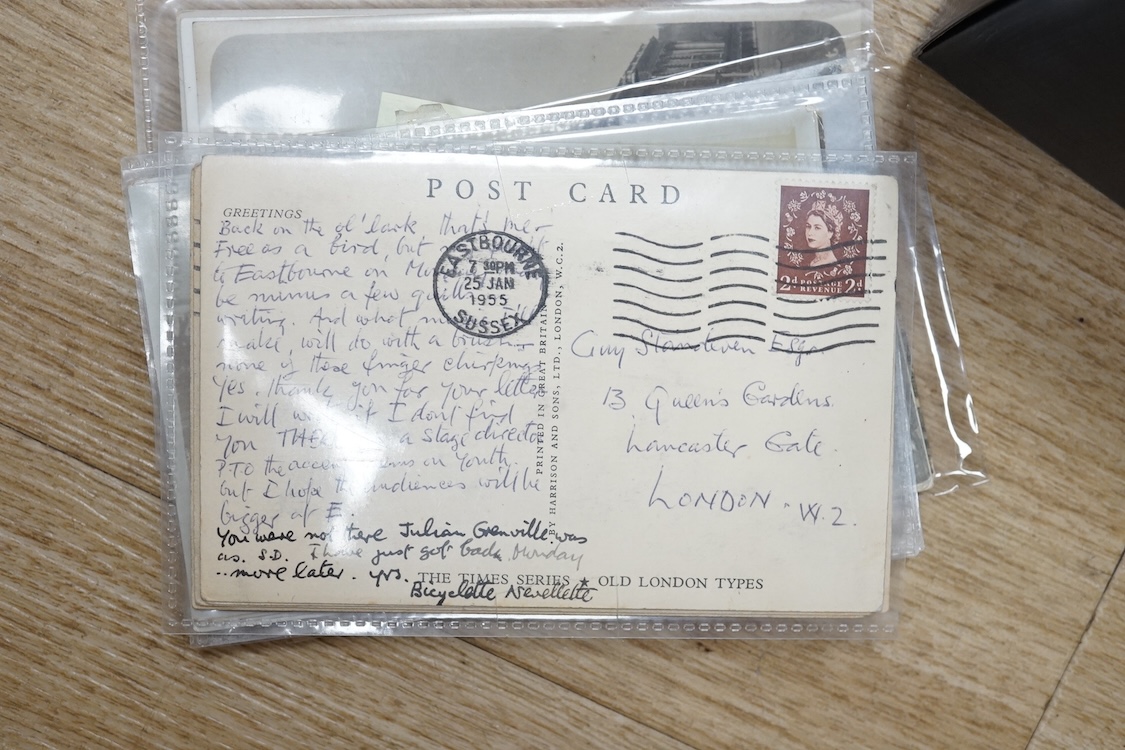 POST CARD
GREETINGS
Back on the ol' lark that's me -
Free as a bird, but
to Eastbourne on
be minus a few quills
writing. And what
make will do with a brush -
none of these finger
Yes. Thank you for your letter
I will if I don't find
you a stage director
PTO the on Youth.
but I hope the audiences will be
bigger at E.
You were not there Julian Grenville was
as S.D. I have just got back Monday
.. more later. yrs.
Bicyclette Nevellette
EASTBOURNE
7 30PM
25 JAN
1955
SUSSEX
PRINTED IN GREAT BRITAIN
BY HARRISON AND SONS, LTD., LONDON, W.C.2.
2d POSTAGE REVENUE 2d
Guy Standeven Esq.
13 Queen's Gardens.
Lancaster Gate.
LONDON - W.2.
THE TIMES SERIES ★ OLD LONDON TYPES